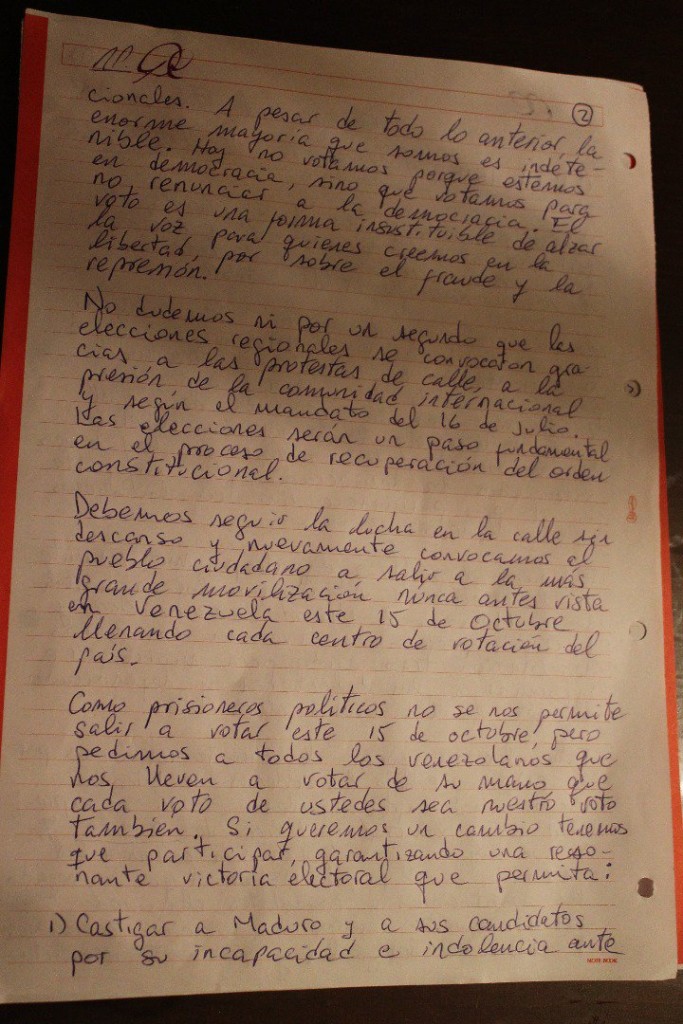 2
cionales. A pesar de todo lo anterior, la
enorme mayoría que somos es indete-
nible. Hoy no votamos porque estemos
en democracia, sino que votamos para
no renunciar a la democracia. El
voto es una forma insustituible de alzar
la voz para quienes creemos en la
libertad, por sobre el fraude y la
represión.
No dudemos ni por un segundo que las
elecciones regionales se convocaron gra
cias a las protestas de calle, a la
presión de la comunidad internacional
y según el mandato del 16 de Julio.
Las elecciones serán un paso fundamental
en el proceso de recuperación del orden
constitucional.
Debemos seguir la lucha en la calle sin
descanso y nuevamente convocamos al
pueblo ciudadano a salir a la más
grande movilización nunca antes vista
en Venezuela este 15 de Octubre
llenando cada centro de votación del
país.
Como prisioneros políticos no se nos permite
salir a votar este 15 de octubre, pero
pedimos a todos los venezolanos que
nos lleven a votar de su mano que
cada voto de ustedes sea nuestro voto
también. Si queremos un cambio tenemos
que participar, garantizando una reso-
nante victoria electoral que permita:
i) Castigar a Maduro y a sus candidatos
por su incapacidad e indolencia ante